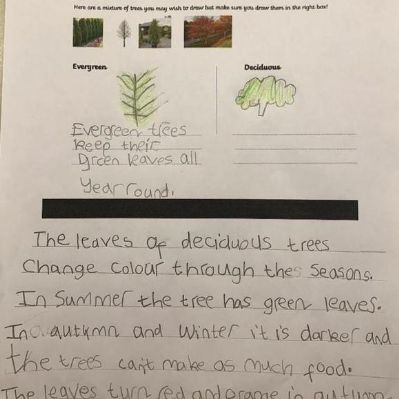 Here are a mixture of trees you may wish to draw but make sure you draw them in the right box!
Evergreen
Deciduous
Evergreen trees
keep their
green leaves all
year round.
The leaves of deciduous trees
Change colour through the seasons.
In Summer the tree has green leaves.
In autumn and winter it is darker and
the trees can't make as much food.
The leaves turn red and orange in autumn.